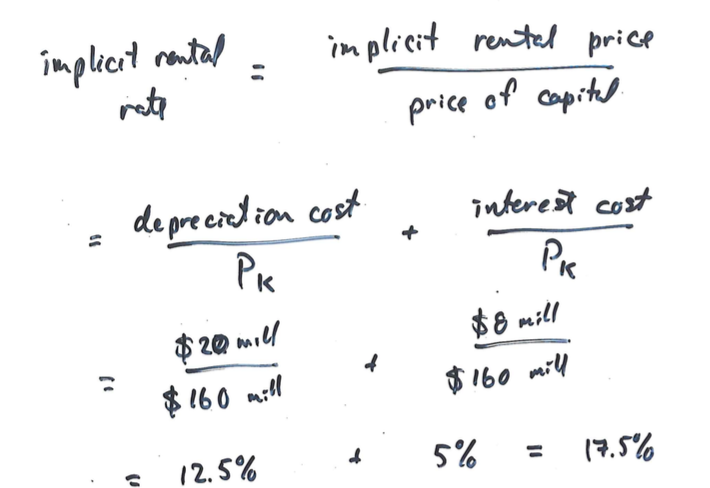 implicit rental rate = implicit rental price / price of capital
= depreciation cost / PK + interest cost / PK
= $20 mill / $160 mill + $8 mill / $160 mill
= 12.5% + 5% = 17.5%